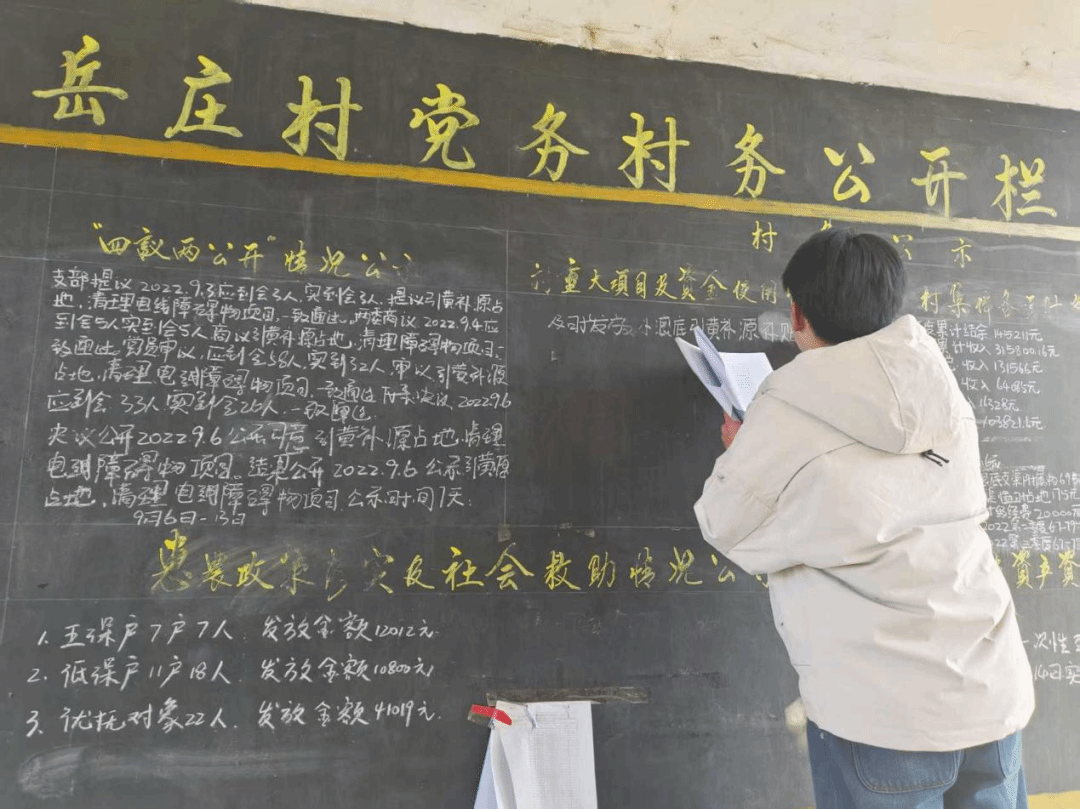 岳庄村党务村务公开栏
"四议两公开"情况公示
支部提议2022.9.3应到会3人,实到会3人,提议引黄补源占
地,清理电线障碍物项目,一致通过,两委商议2022.9.4应
到会5人实到会5人商议引黄补源占地,清理障碍物项目,一
致通过。党员审议,应到会58人,实到52人,审议引黄补源
占地,清理电线障碍物项目一致通过 决议2022.9.6
应到会33人实到会26人,一致通过
决议公开2022.9.6公示同意引黄补源占地,清理
电线障碍物项目。结果公开2022.9.6公示引黄源
占地,清理电线障碍物项目公示时间7天:
9月6日-13日
村 公示
重大项目及资金使用
及时发放 引黄补源
村集
累计结余
计收入315800.16元
收入131566元
收入64085元
1528元
20000元
惠农政策落实及社会救助情况公
1. 五保户7户7人. 发放金额12012元.
2. 低保户11户18人. 发放金额10800元
3. 优抚对象22人. 发放金额41019元.
资产资
一次性